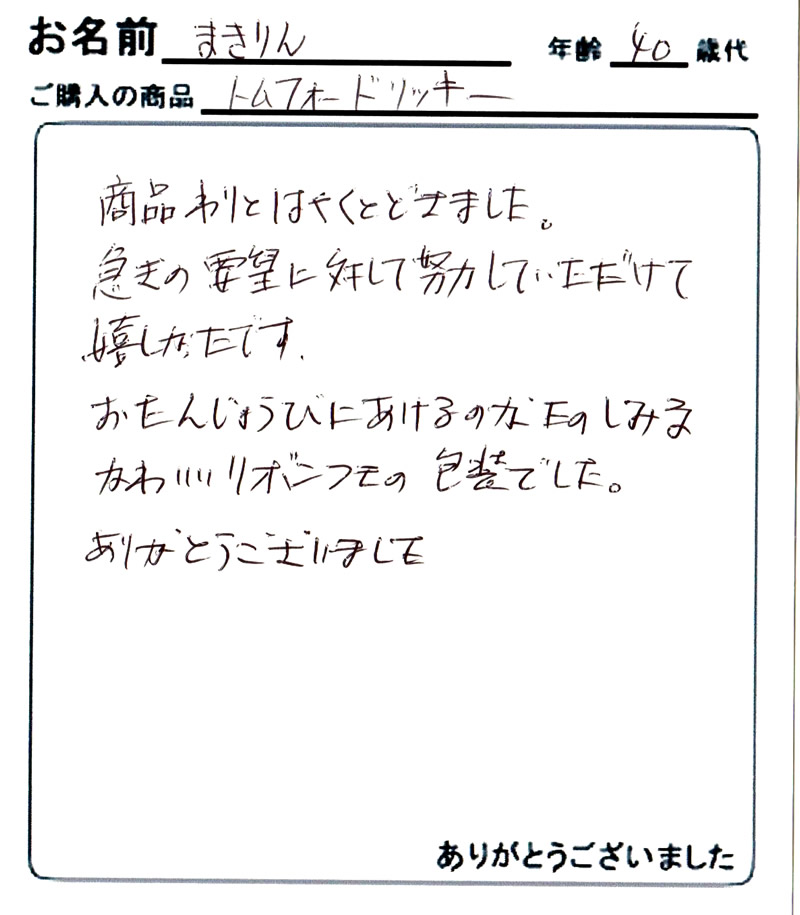 お名前 まきりん 年齢 40 歳代
ご購入の商品 トムフォードリッキー
商品わりとはやくとどきました。
急ぎの要望に対して努力していただけて
嬉しかったです.
おたんじょうびにあげるのがたのしみな
かわいいリボンつきの包装でした。
ありがとうございました
ありがとうございました